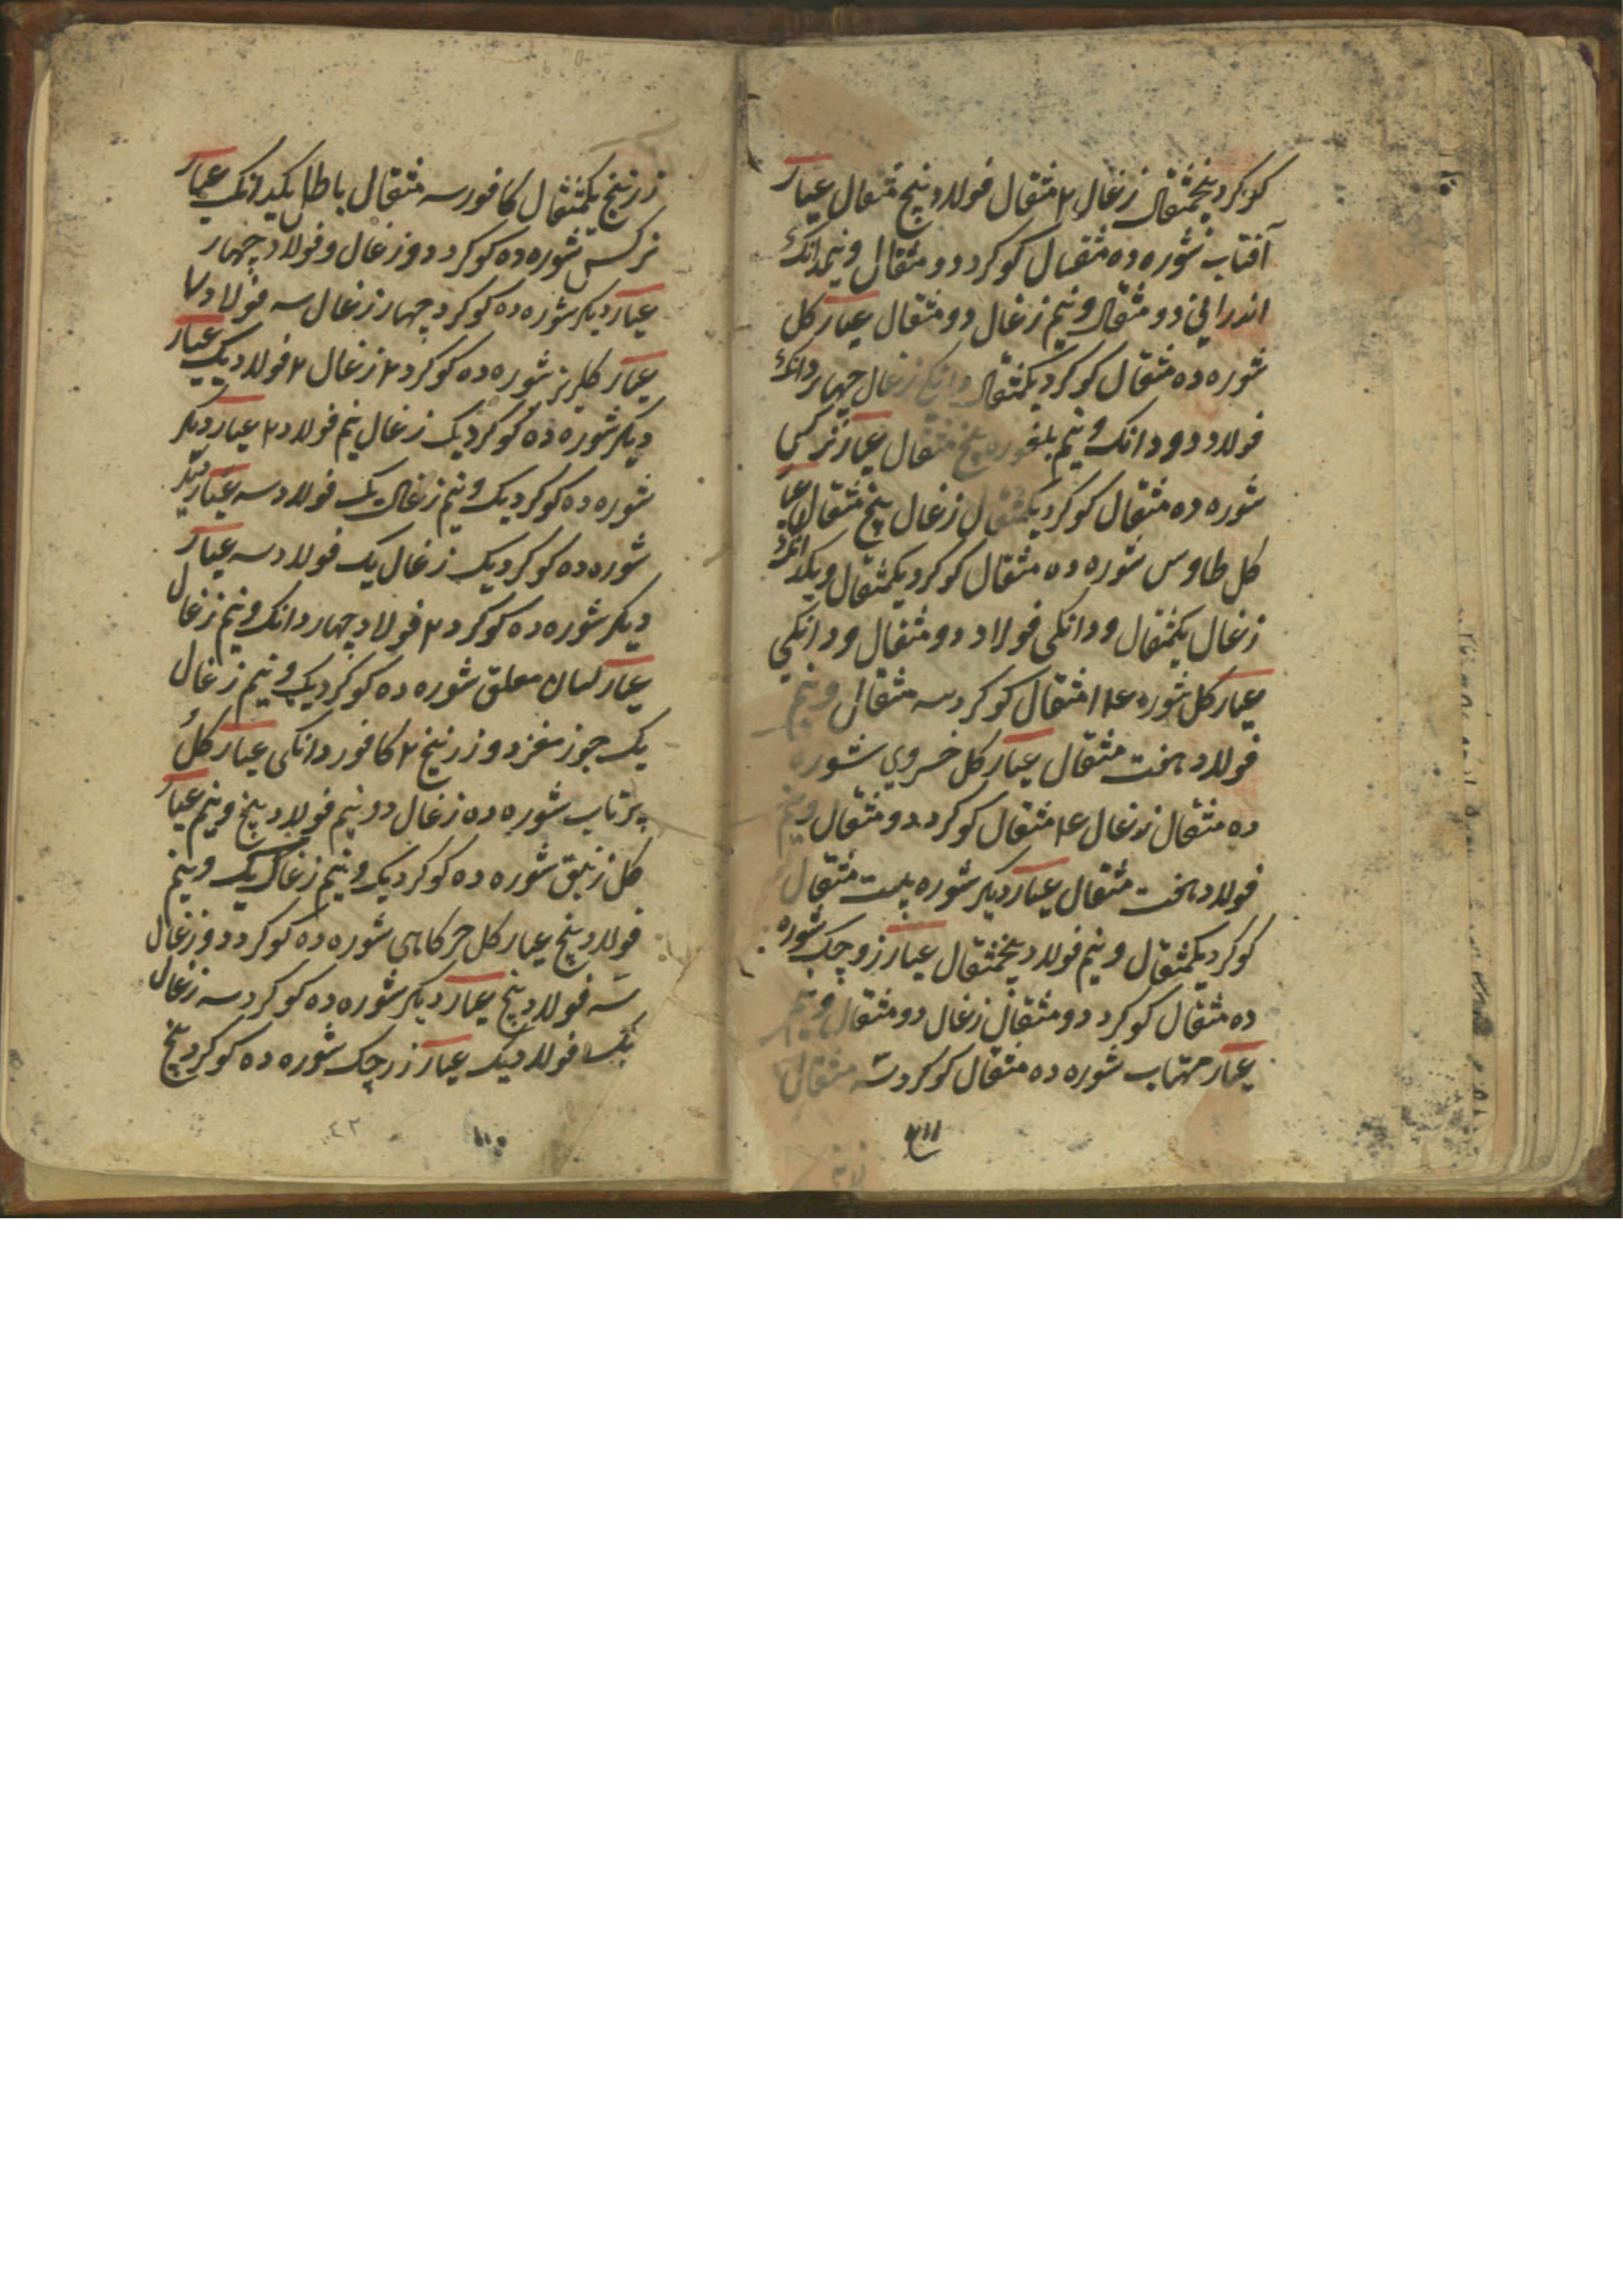 کوکرد پنجمثقال زغال ۲ مثقال فولاد پنج مثقال عیار
آفتاب شوره ده مثقال کوکرد دو مثقال و نیمدانک
اندرانی دو مثقال و نیم زغال دو مثقال عیار کل
شوره ده مثقال کوکرد یکمثقال دانکی زغال چهار دانک
فولاد دو دانک و نیم پنج مثقال عیار نرکس
شوره ده مثقال کوکرد یکمثقال زغال پنج مثقال عیار
کل طاوس شوره ده مثقال کوکرد یکمثقال و یکدانک
زغال یکمثقال و دانکی فولاد دو مثقال و دانکی
عیار کل شوره مثقال کوکرد سه مثقال و نیم
فولاد هفت مثقال عیار کل خسروی شوره
ده مثقال زغال مثقال کوکرد دو مثقال و نیم
فولاد هفت مثقال عیار دیکر شوره بیست مثقال
کوکرد یکمثقال و نیم فولاد پنجمثقال عیار زوچک شوره
ده مثقال کوکرد دو مثقال زغال دو مثقال و نیم
عیار مهتاب شوره ده مثقال کوکرد سه مثقال
زرنیخ یکمثقال کافور سه مثقال باطل یکدانک عیار
نرکس شوره ده کوکرد دو زغال و فولاد چهار
عیار دیکر شوره ده کوکرد چهار زغال سه فولاد ۷
عیار کلریز شوره ده کوکرد ۲ زغال ۲ فولاد یک عیار
دیکر شوره ده کوکرد یک زغال نیم فولاد ۲ عیار دیکر
شوره ده کوکرد یک و نیم زغال یک فولاد سه عیار دیکر
شوره ده کوکرد یک زغال یک فولاد سه عیار
دیکر شوره ده کوکرد ۲ فولاد چهار دانک و نیم زغال
عیار معلق شوره ده کوکرد یک و نیم زغال
یک جوز مغز دو زرنیخ ۲ کافور دانکی عیار کل
پرتاب شوره ده زغال دو نیم فولاد پنج و نیم عیار
کل زنبق شوره ده کوکرد یک و نیم زغال یک و نیم
فولاد پنج عیار کل خرکاهی شوره ده کوکرد دو زغال
سه فولاد پنج عیار دیکر شوره ده کوکرد سه زغال
یک فولاد یک عیار زرچک شوره ده کوکرد پنج